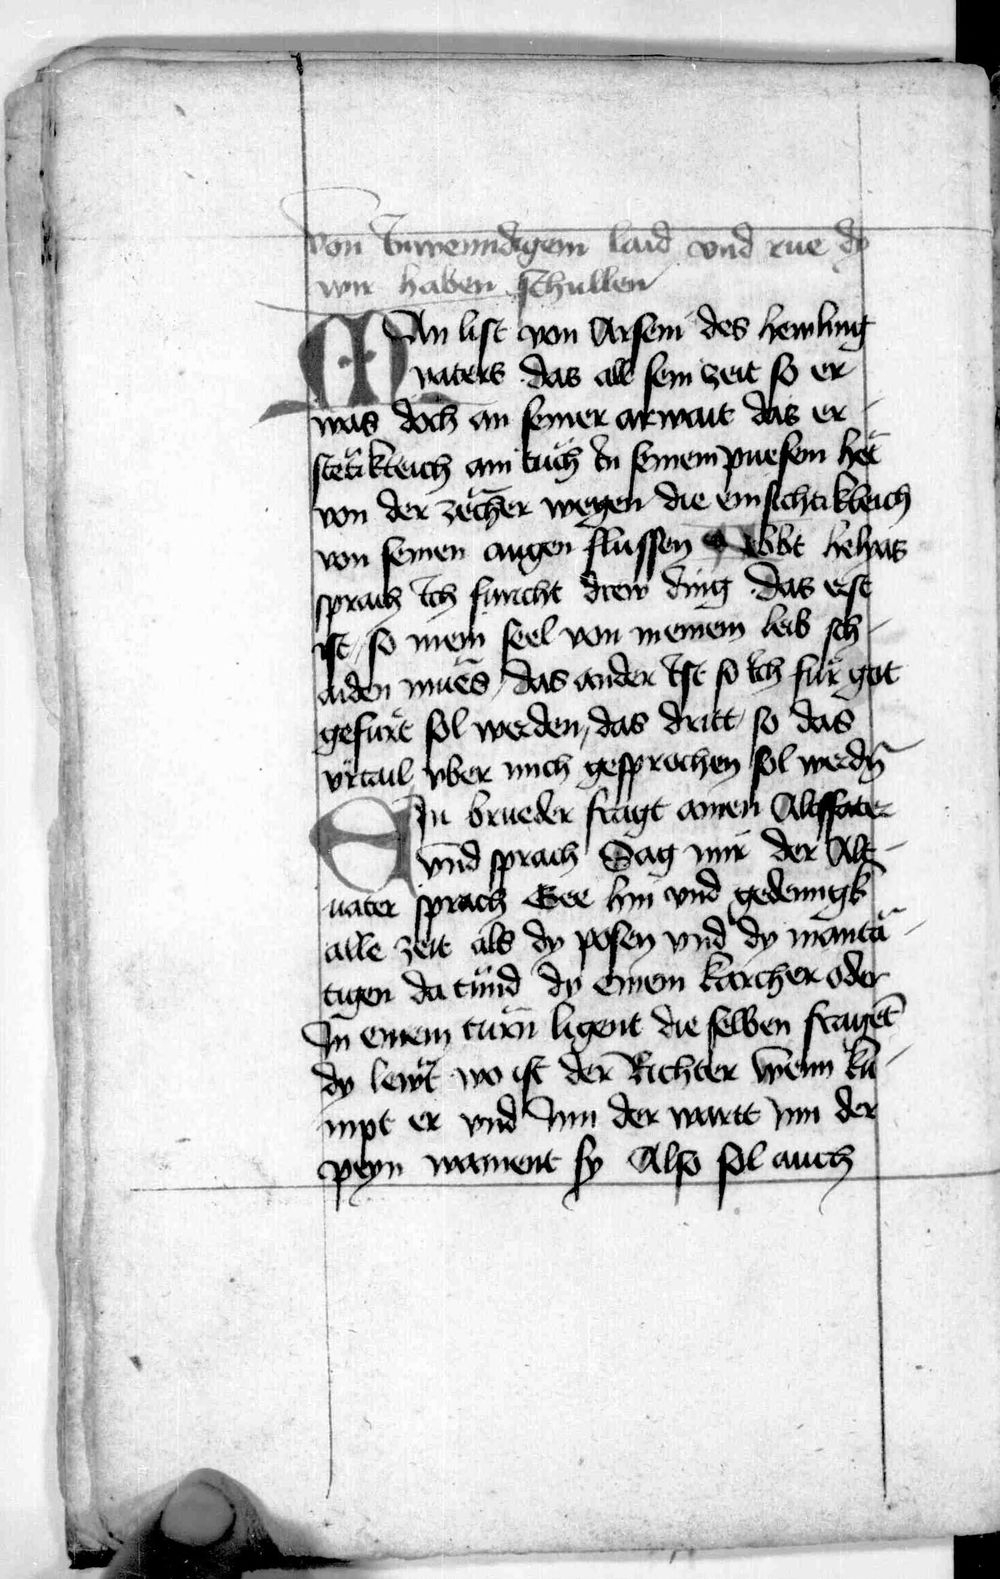 Von Inwenndigem laid vnd rue dy
wir haben schullen
MAn list von Arseni des heiling
vaters das all sein zeit so er
was doch an seiner arwait das er
stetikleich ain tuch In seinem puesem het
von der zecher wegen die emsichtikleich
von seinen augen flussen Abbt helyas
sprach Ich furcht drew ding das erst
ist so mein seel von meinem leib sch-
aiden mues das ander Ist so Ich fur got
gefurt sol werden das dritt so das
vrtail vber mich gesprochen sol werdn
EIn brueder fragt ainen Altfater
vnd sprach Sag mir der Alt-
uater sprach Gee hin vnd gedenngk
alle zeit als dy posen vnd dy mainta-
tigen da tund dy einem karcher oder
In einem turn ligent die selben fragent
dy lewt wo ist der Richter wenn ku-
mpt er vnd Inn der wartt Inn der
peyn wainent sy Also sol auch